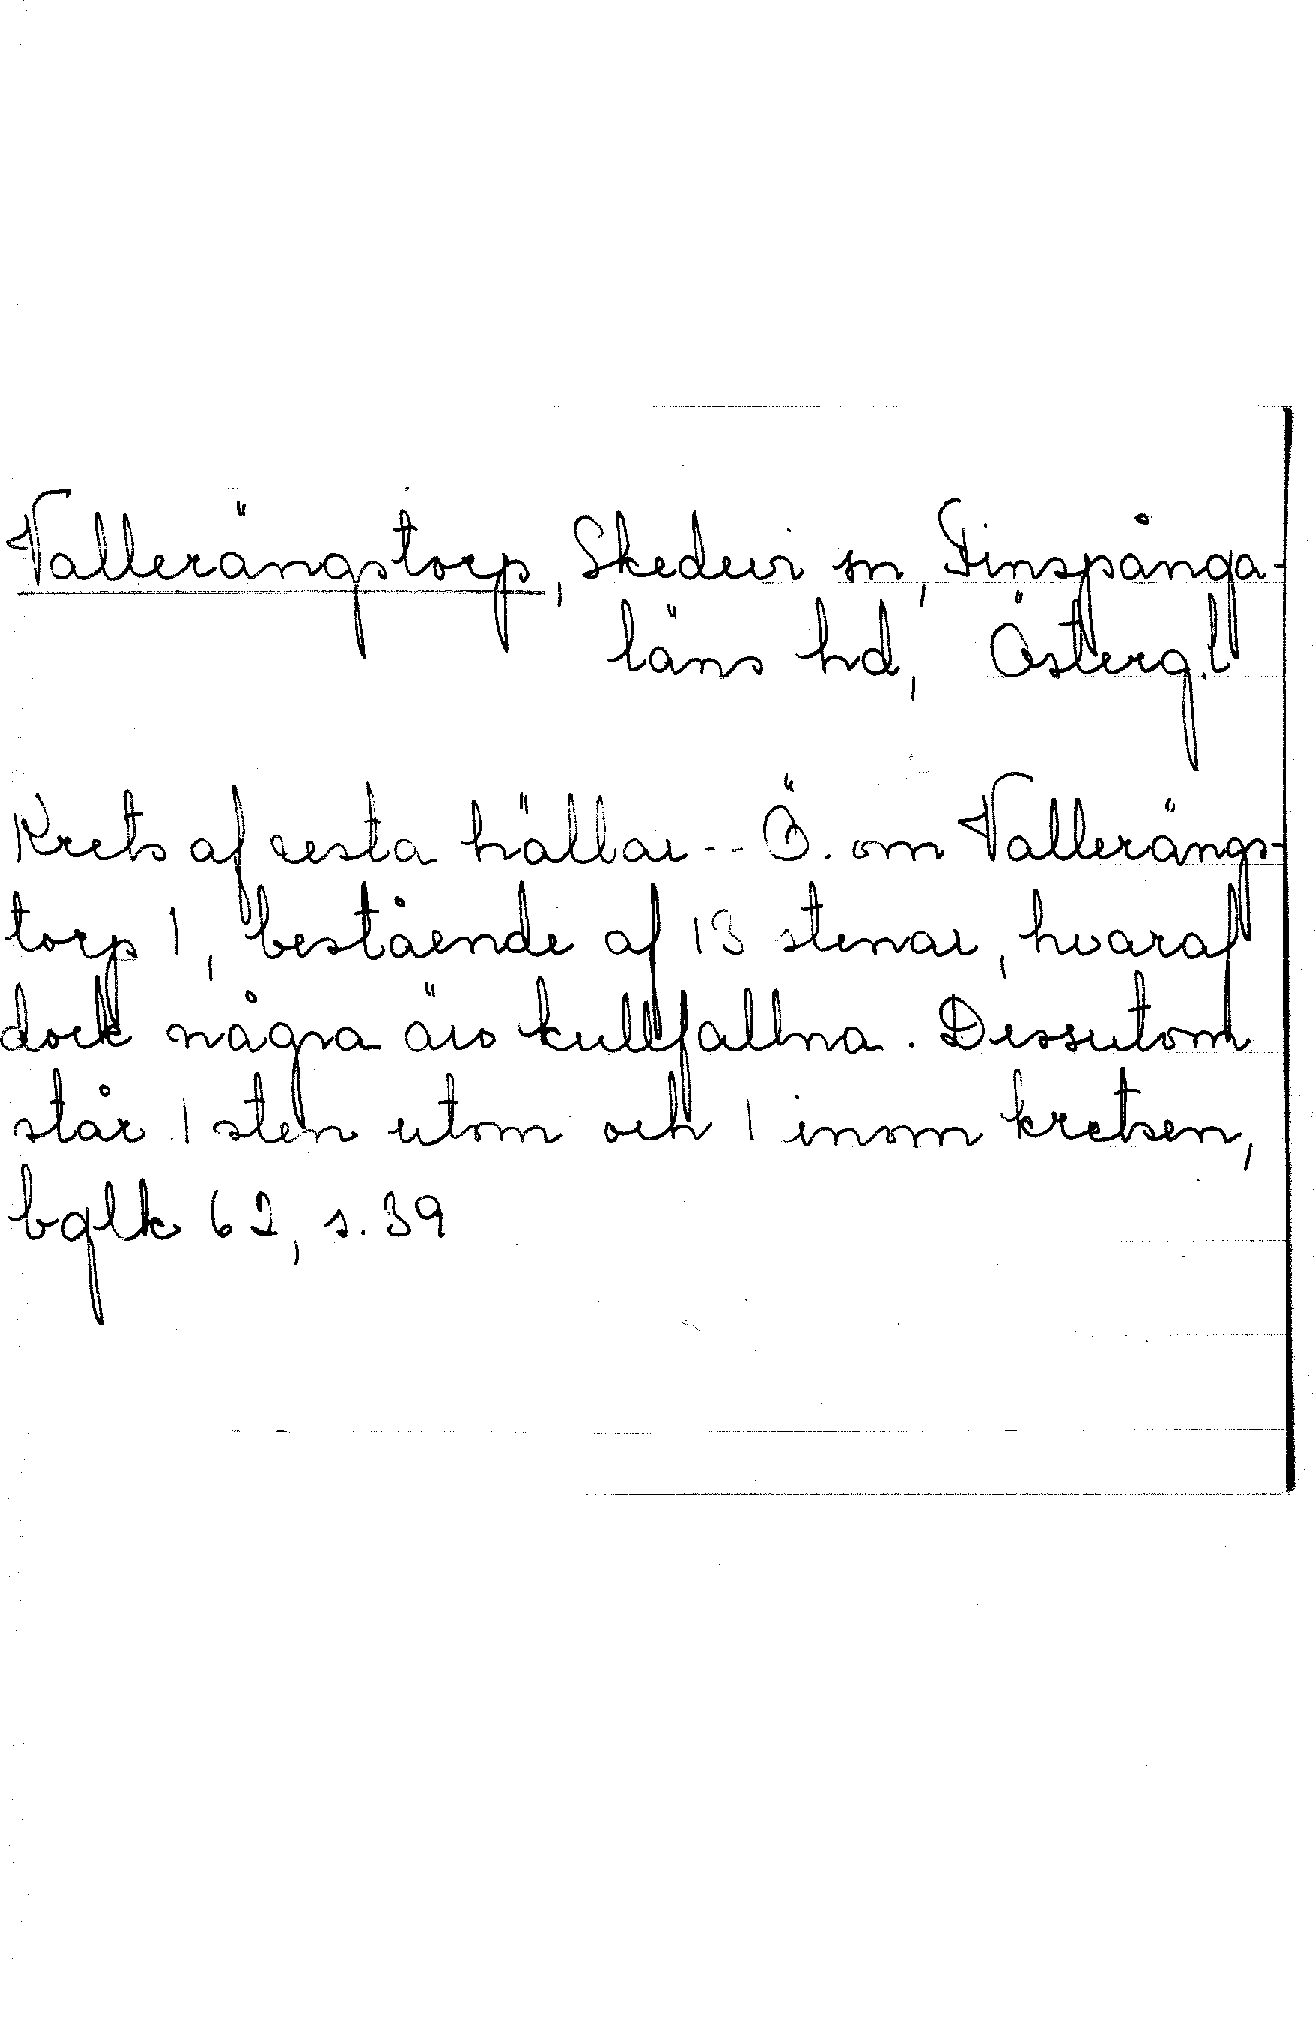 Vallerängstorp, Skedevi sn, Finspånga-
läns hd, Österg.l
Krets af resta hällar -- Ö. om Vallerängs-
torp 1, bestående af 13 stenar, hvaraf
dock några äro kullfallna. Dessutom
står 1 sten utom och 1 inom kretsen,
bglk 62, s. 39